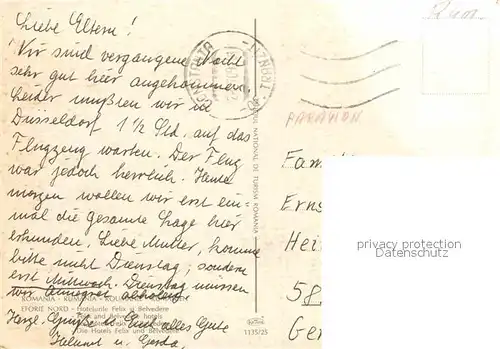 Liebe Eltern!
Wir sind vergangene Nacht
sehr gut hier angekommen.
Leider mußten wir in
Düsseldorf 1 1/2 Std. auf das
Flugzeug warten. Der Flug
war jedoch herrlich. Heute
morgen wollen wir erst ein=
mal die gesamte Lage hier
erkunden. Liebe Mutter, komme
bitte nicht Dienstag, sondern
erst Mittwoch. Dienstag müssen
wir
ROMANIA - RUMANIA -
EFORIE NORD - Hotelurile Felix și Belvedere
Felix and Belvedere hotels
Die Hotels Felix und Belvedere
Herzl. Grüße u. Euch alles Gute
Helmut u. Gerda
NATIONAL DE TURISM ROMANIA
1135/25
Rum.
PAR AVION
Fam
Erns
Hei
58
Ger
privacy protection
Datenschutz